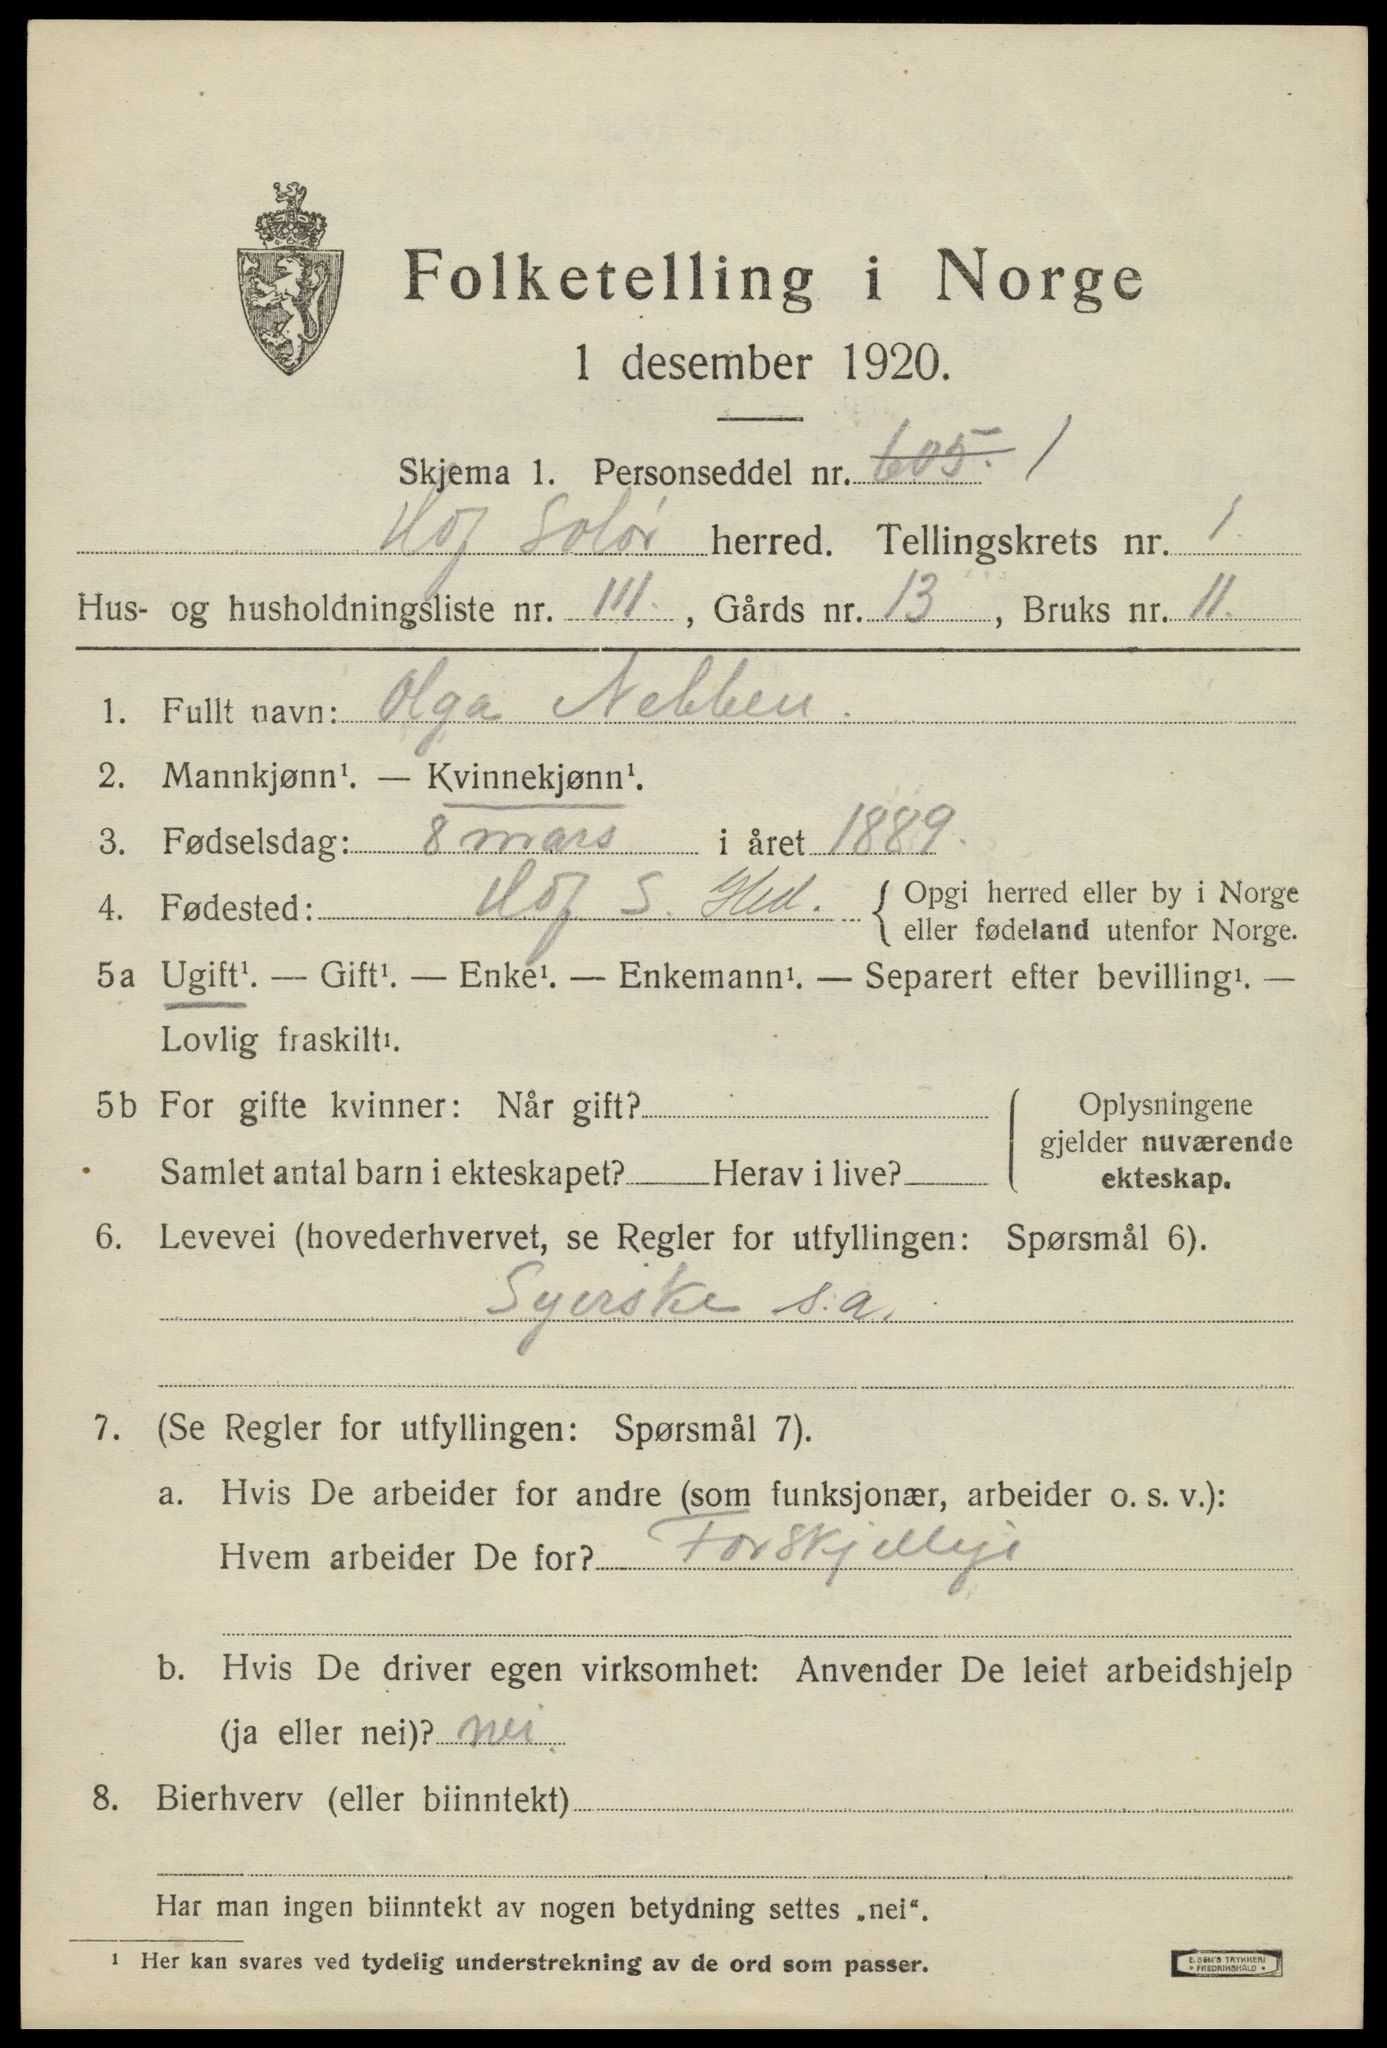 Folketelling i Norge
1 desember 1920.
Skjema 1. Personseddel nr. 605. 1
Hof Solør herred. Tellingskrets nr. 1.
Hus- og husholdningsliste nr. 111. , Gårds nr. 13 , Bruks nr. 11.
1. Fullt navn: Olga Nebben.
2. Mannkjønn¹. — Kvinnekjønn¹.
3. Fødselsdag: 8 mars i året 1889.
4. Fødested: Hof S. Hed. { Opgi herred eller by i Norge
eller fødeland utenfor Norge.
5a Ugift¹. — Gift¹. — Enke¹. — Enkemann¹. — Separert efter bevilling¹. —
Lovlig fraskilt¹.
5b For gifte kvinner: Når gift?
Samlet antal barn i ekteskapet? Herav i live?
Oplysningene
gjelder nuværende
ekteskap.
6. Levevei (hovederhvervet, se Regler for utfyllingen: Spørsmål 6).
Syerske s.a.
7. (Se Regler for utfyllingen: Spørsmål 7).
a. Hvis De arbeider for andre (som funksjonær, arbeider o. s. v.):
Hvem arbeider De for? Forskjellige
b. Hvis De driver egen virksomhet: Anvender De leiet arbeidshjelp
(ja eller nei)? nei.
8. Bierhverv (eller biinntekt)
Har man ingen biinntekt av nogen betydning settes „nei“.
¹ Her kan svares ved tydelig understrekning av de ord som passer.
E. SEM'S TRYKKERI
• FREDRIKSHALD •